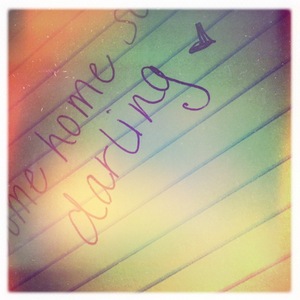 ome home so
darling